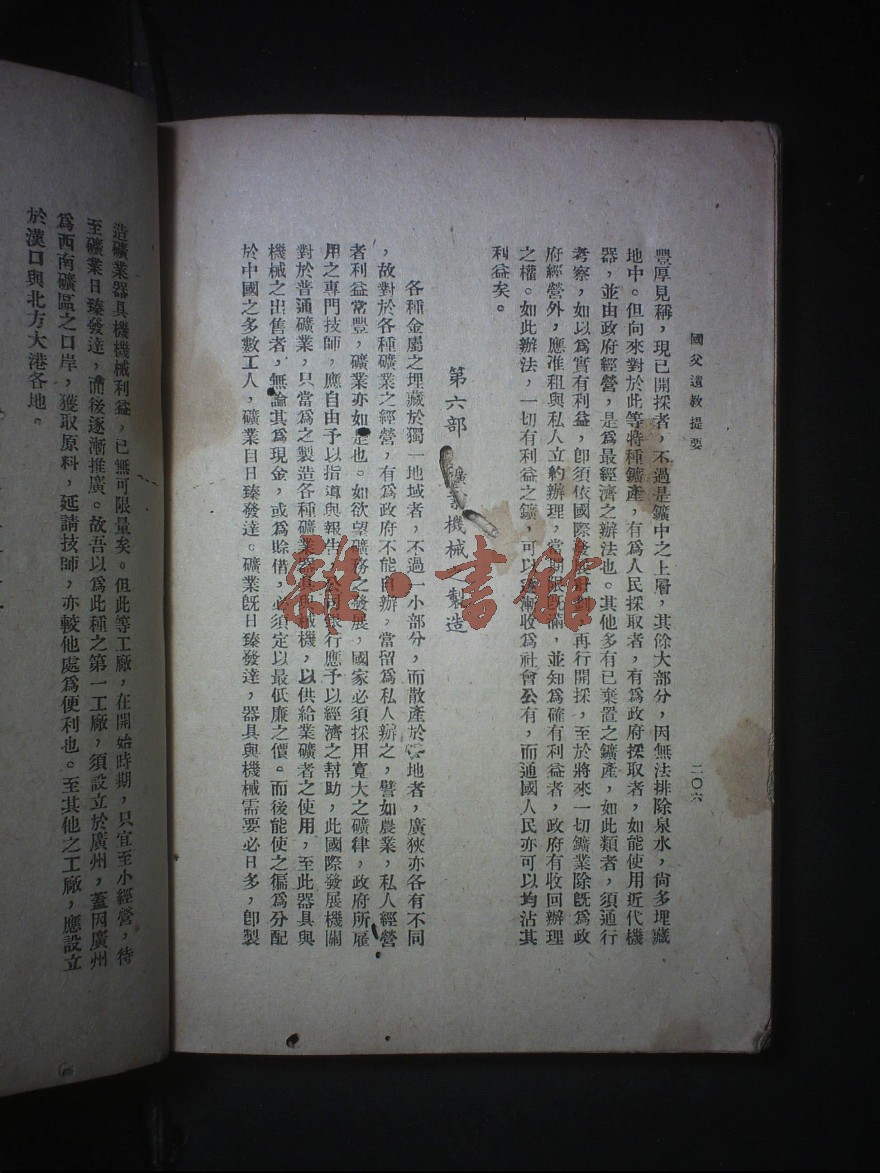 國父遺教提要
二〇六
豐厚見稱，現已開採者，不過是鑛中之上層，其餘大部分，因無法排除泉水，尙多埋藏
地中。但向來對於此等特種鑛產，有爲人民採取者，有爲政府採取者，如能使用近代機
器，並由政府經營，是爲最經濟之辦法也。其他多有已棄置之鑛產，如此類者，須通行
考察，如以爲實有利益，卽須依國際發展計劃，再行開採，至於將來一切鑛業除旣爲政
府經營外，應准租與私人立約辦理，當期限旣滿，並知爲確有利益者，政府有收回辦理
之權。如此辦法，一切有利益之鑛，可以逐漸收爲社會公有，而通國人民亦可以均沾其
利益矣。
第六部 礦業機械之製造
各種金屬之埋藏於獨一地域者，不過一小部分，而散產於各地者，廣狹亦各有不同
，故對於各種礦業之經營，有爲政府不能自辦，當留爲私人辦之，譬如農業，私人經營
者利益常豐，礦業亦如是也。如欲望礦務之發展，國家必須採用寬大之礦律，政府所雇
用之專門技師，應自由予以指導與報告，公司銀行應予以經濟之幫助，此國際發展機關
對於普通礦業，只當爲之製造各種礦業器具與械機，以供給業礦者之使用，至此器具與
機械之出售者，無論其爲現金，或爲賒借，必須定以最低廉之價。而後能使之徧爲分配
於中國之多數工人，礦業自日臻發達。礦業旣日臻發達，器具與機械需要必日多，卽製
造礦業器具機機械利益，已無可限量矣。但此等工廠，在開始時期，只宜至小經營，待
至礦業日臻發達，而後逐漸推廣。故吾以爲此種之第一工廠，須設立於廣州，蓋因廣州
爲西南礦區之口岸，獲取原料，延請技師，亦較他處爲便利也。至其他之工廠，應設立
於漢口與北方大港各地。
雜·書館